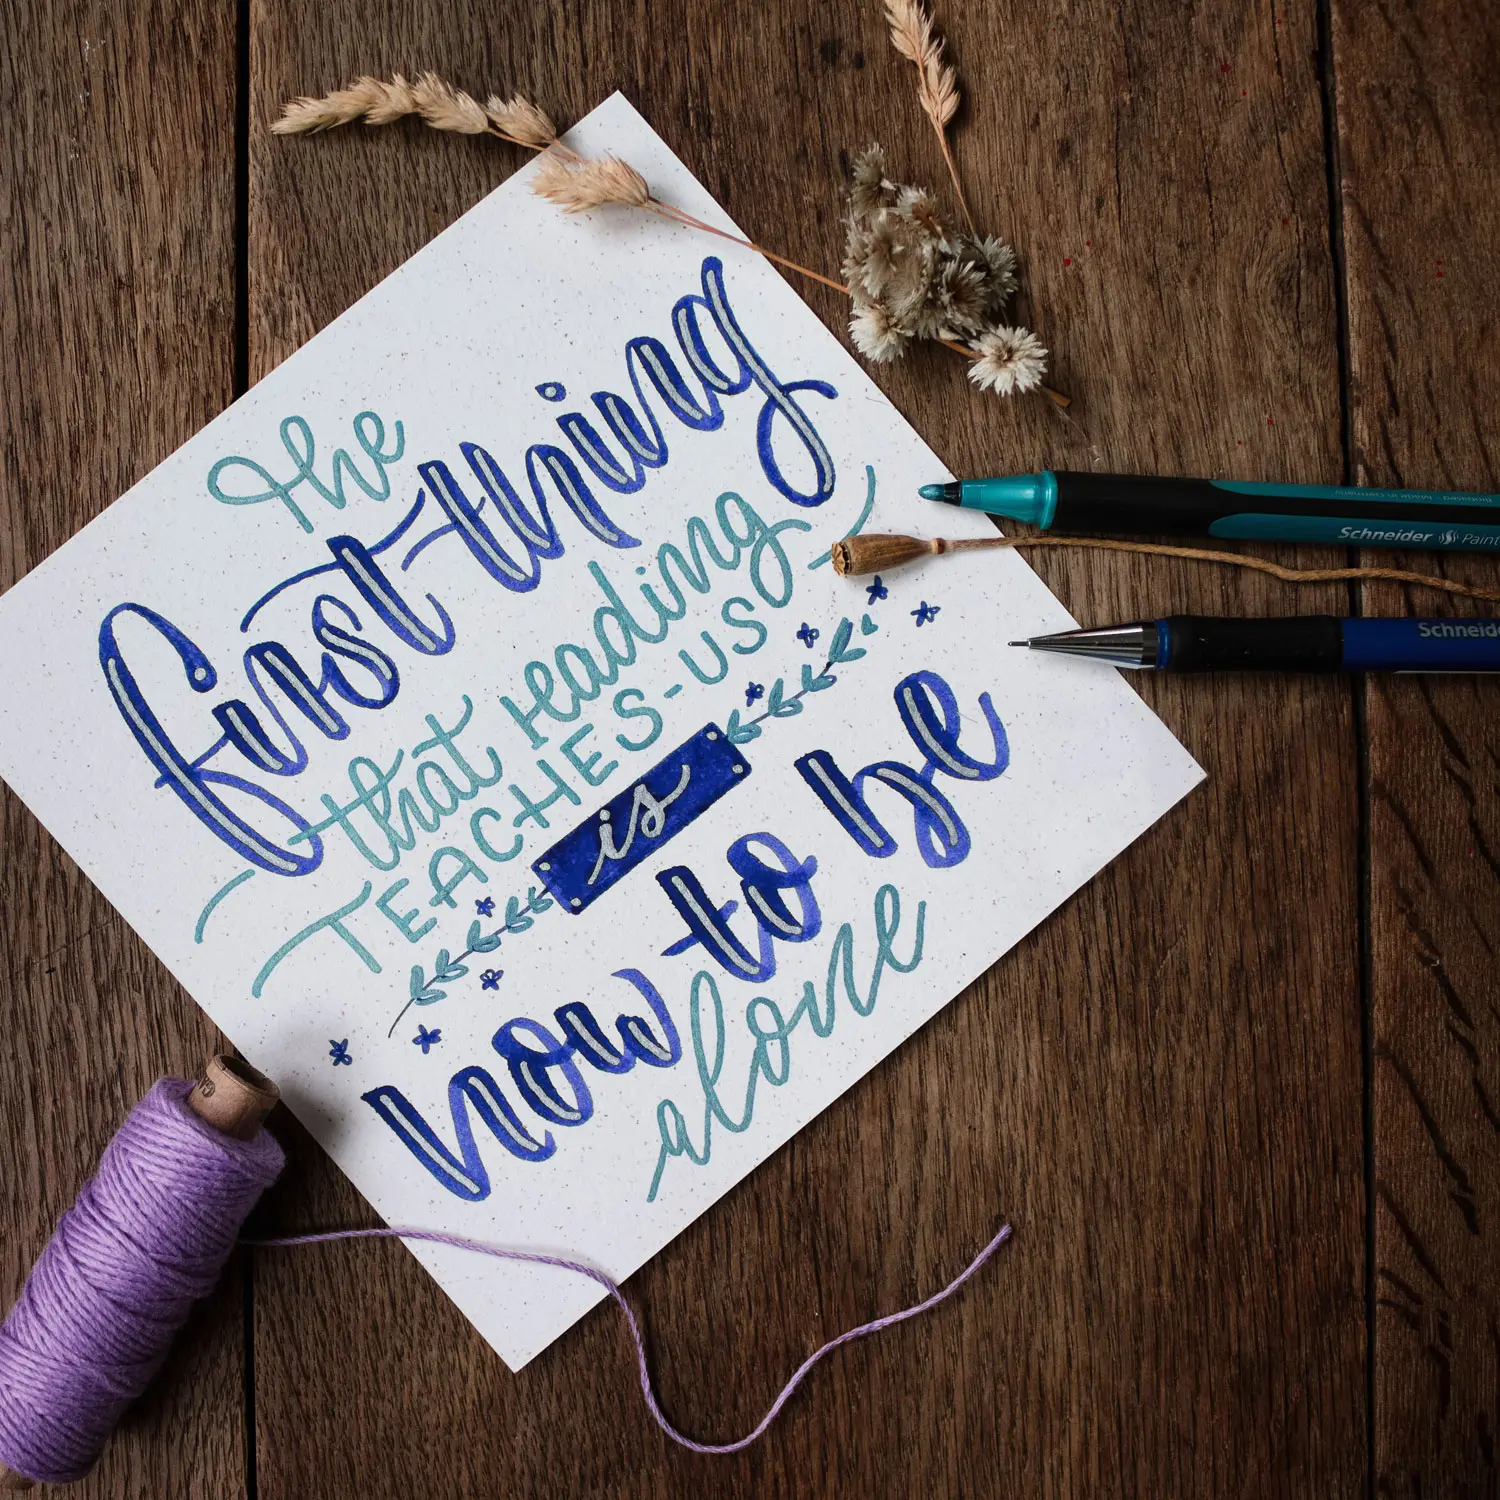 the
first thing
that reading
TEACHES-US
is
how to be
alone
Schneider Paint
Schneide